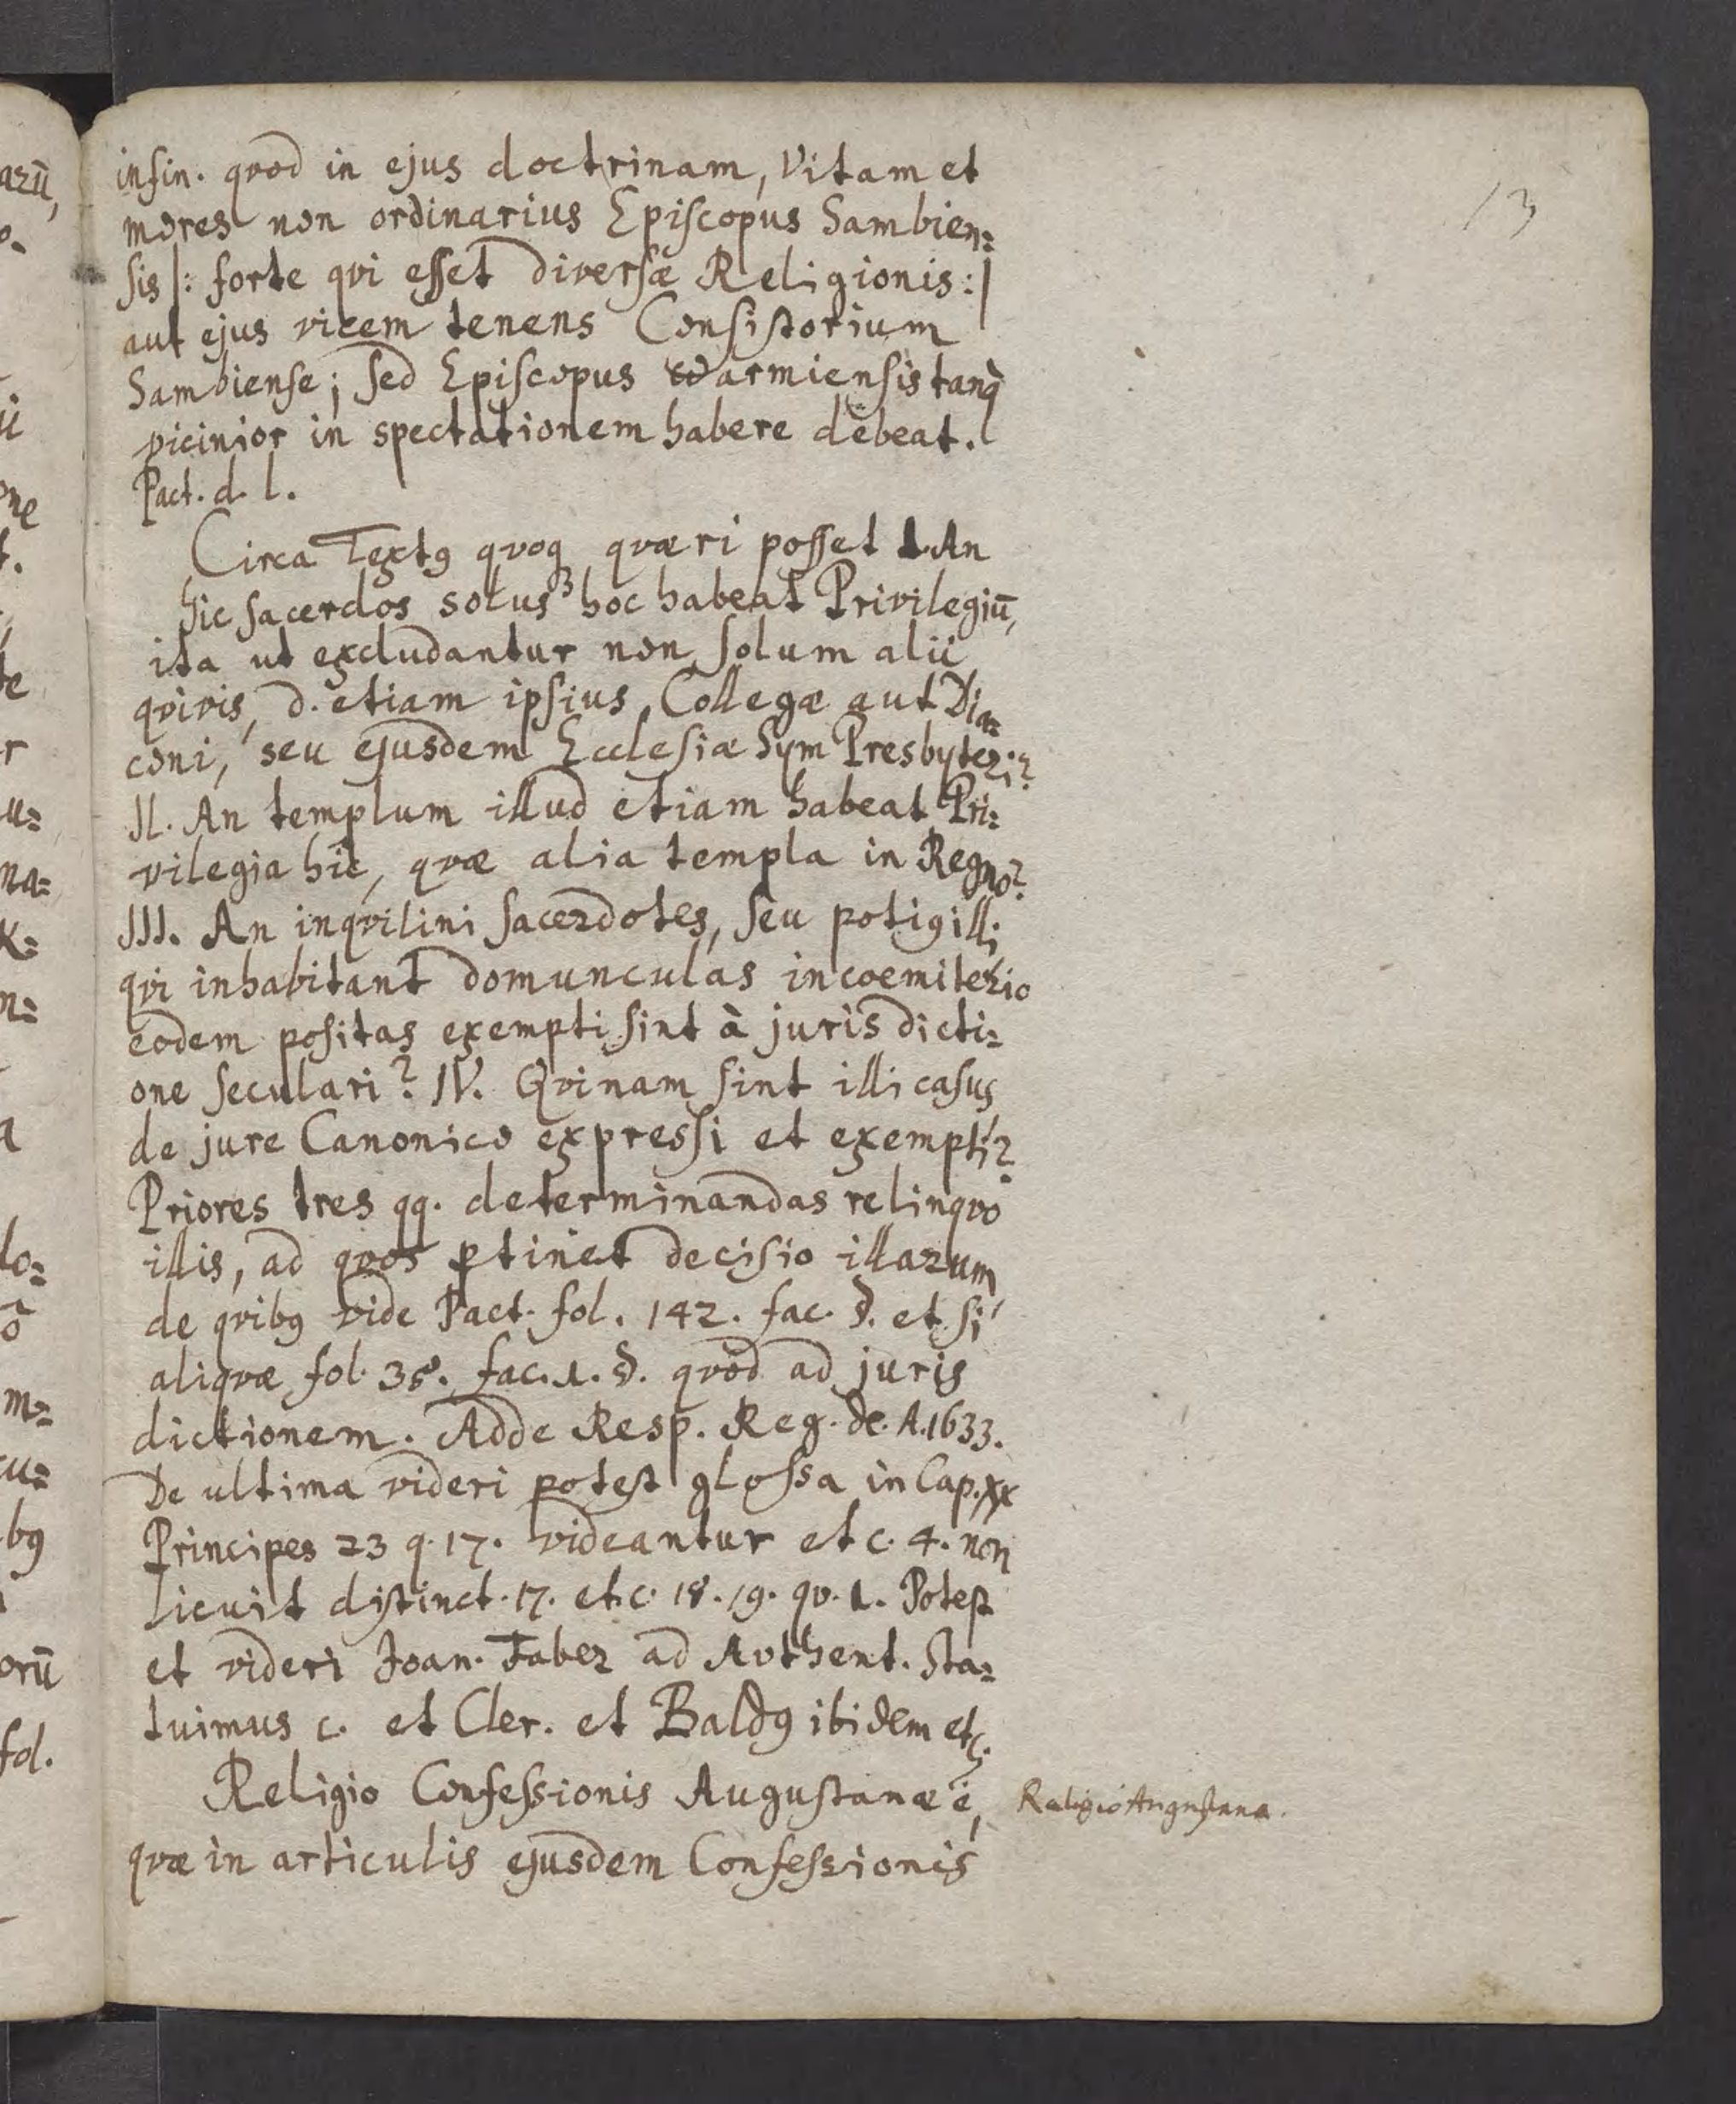 13
infin. qvod in ejus doctrinam, Vitam et
mores non ordinarius Epiſcopus Sambien⸗
ſis |: forte qvi eſſet diverſæ Religionis :|
aut ejus vicem tenens Conſiſtorium
Sambienſe; ſed Epiſcopus Warmienſis tanq̀
vicinior in spectationem habere debeat.
Pact. d. l.
Circa Textꝰ qvoq quæri poſſet 1. An
hic ſacerdos solus hoc habeat Privilegiū,
ita ut excludantur non ſolum alii
qvivis, d. etiam ipſius Collegæ aut Dia⸗
coni, seu ejusdem Eccleſiæ Sym Presbyteri?
II. An templum illud etiam habeat Pri⸗
vilegia hic, qvæ alia templa in Regno?
III. An inqvilini ſacerdotes, ſeu potiꝰ illi
qvi inhabitant domunculas in coemiterio
eodem poſitas exempti ſint à juris dicti⸗
one ſeculari? IV. Qvinam ſint illi caſus
de jure Canonico expresſi et exempti?
Priores tres qq. determinandas relinqvo
illis, ad qvos ꝑtinet deciſio illarum
de qvibꝰ vide Pact. fol. 142. fac. d. et ſi
aliqvæ fol. 38. fac. 1. d. qvod ad juris
dictionem. Adde Resp. Reg. de. A. 1633.
De ultima videri poteſt gloſsa in Cap. xx
Principes 23 q. 17. videantur et c. 4. non
licuit diſtinct. 17. et c. 18. 19. qv. 1. Poteſt
et videri Joan. Faber ad Avthent. Sta⸗
tuimus c. et Cler. et Baldꝰ ibidem etc.
Religio Confeſsionis Auguſtanæ ē,
Religio Auguſtana.
qvæ in articulis ejusdem Confeſsionis